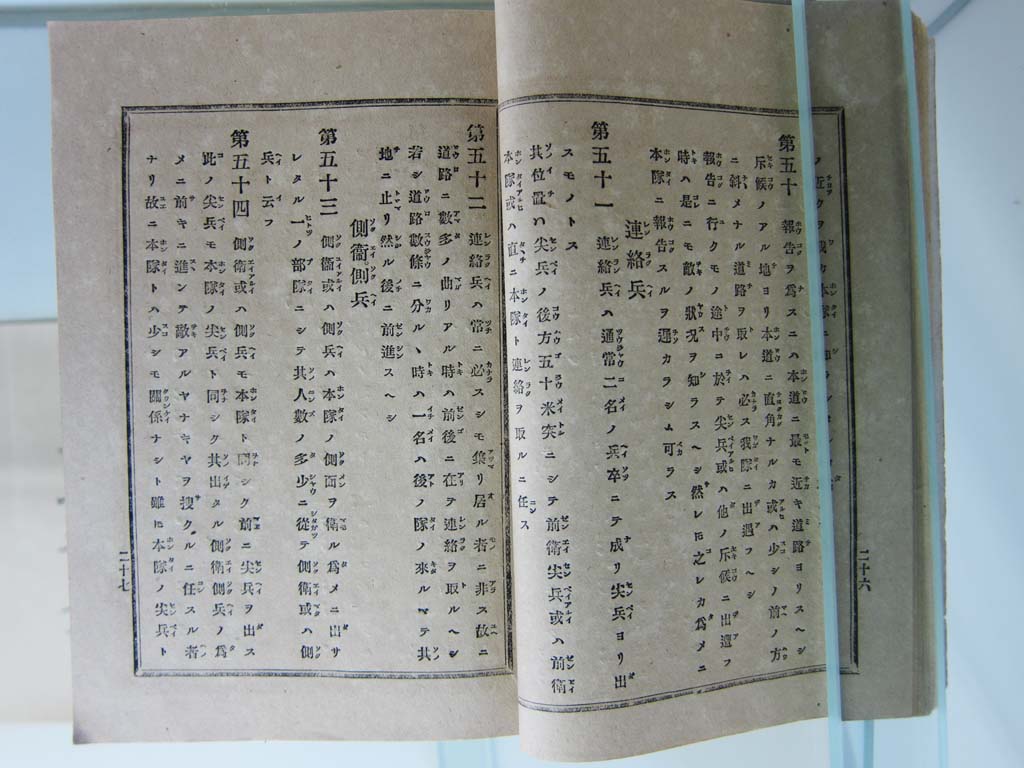 第五十 報告ヲ爲スニハ本道ニ最モ近キ道路ヨリスヘシ
斥候ノアル地ヨリ本道ニ直角ナルカ或ハ少シノ前ノ方
ニ斜メナル道路ヲ取レハ必ス我隊ニ出遇フヘシ
報告ニ行クモノ途中ニ於テ尖兵或ハ他ノ斥候ニ出遇フ
時ハ是ニモ敵ノ狀況ヲ知ラスヘシ然レ𪜈之レカ爲メニ
本隊ニ報告スルヲ遲カラシム可ラス
連絡兵
第五十一 連絡兵ハ通常二名ノ兵卒ニテ成リ尖兵ヨリ出
スモノトス
其位置ハ尖兵ノ後方五十米突ニシテ前衛尖兵或ハ前衛
本隊或ハ直ニ本隊ト連絡ヲ取ルニ任ス
二十六
第五十二 連絡兵ハ常ニ必スシモ集リ居ル者ニ非ス故ニ
道路ニ數多ノ曲リアル時ハ前後ニ在テ連絡ヲ取ルヘシ
若シ道路數條ニ分ルヽ時ハ一名ハ後ノ隊ノ來ルマテ其
地ニ止リ然ル後ニ前進スヘシ
側衞側兵
第五十三 側衞或ハ側兵ハ本隊ノ側面ヲ衛ル爲メニ出サ
レタル一ノ部隊ニシテ其人數ノ多少ニ從テ側衛或ハ側
兵ト云フ
第五十四 側衛或ハ側兵モ本隊ト同シク前ニ尖兵ヲ出ス
此ノ尖兵モ本隊ノ尖兵ト同シク其出タル側衛側兵ノ爲
メニ前キニ進ンテ敵アルヤナキヤヲ搜クルニ任スル者
ナリ故ニ本隊トハ少シモ關係ナシト雖𪜈本隊ノ尖兵ト
二十七